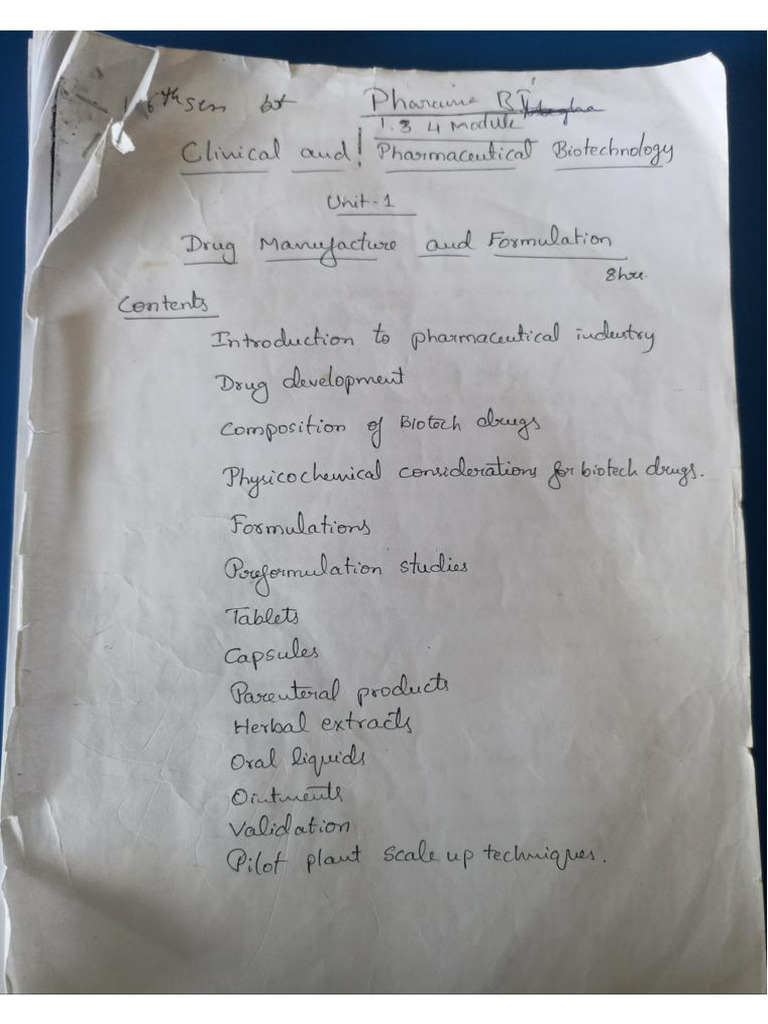 6th sem bt Pharma BT
1.3.4 Module
Clinical and Pharmaceutical Biotechnology
Unit-1
Drug Manufacture and Formulation
8hrs.
Contents
Introduction to pharmaceutical industry
Drug development
Composition of Biotech drugs
Physicochemical considerations for biotech drugs.
Formulations
Preformulation studies
Tablets
Capsules
Parenteral products
Herbal extracts
Oral liquids
Ointments
Validation
Pilot plant scale up techniques.